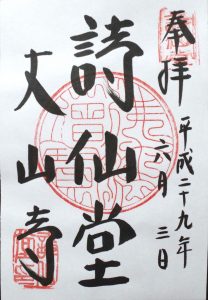 奉拝
平成二十九年
六月三日
詩仙堂
丈山寺